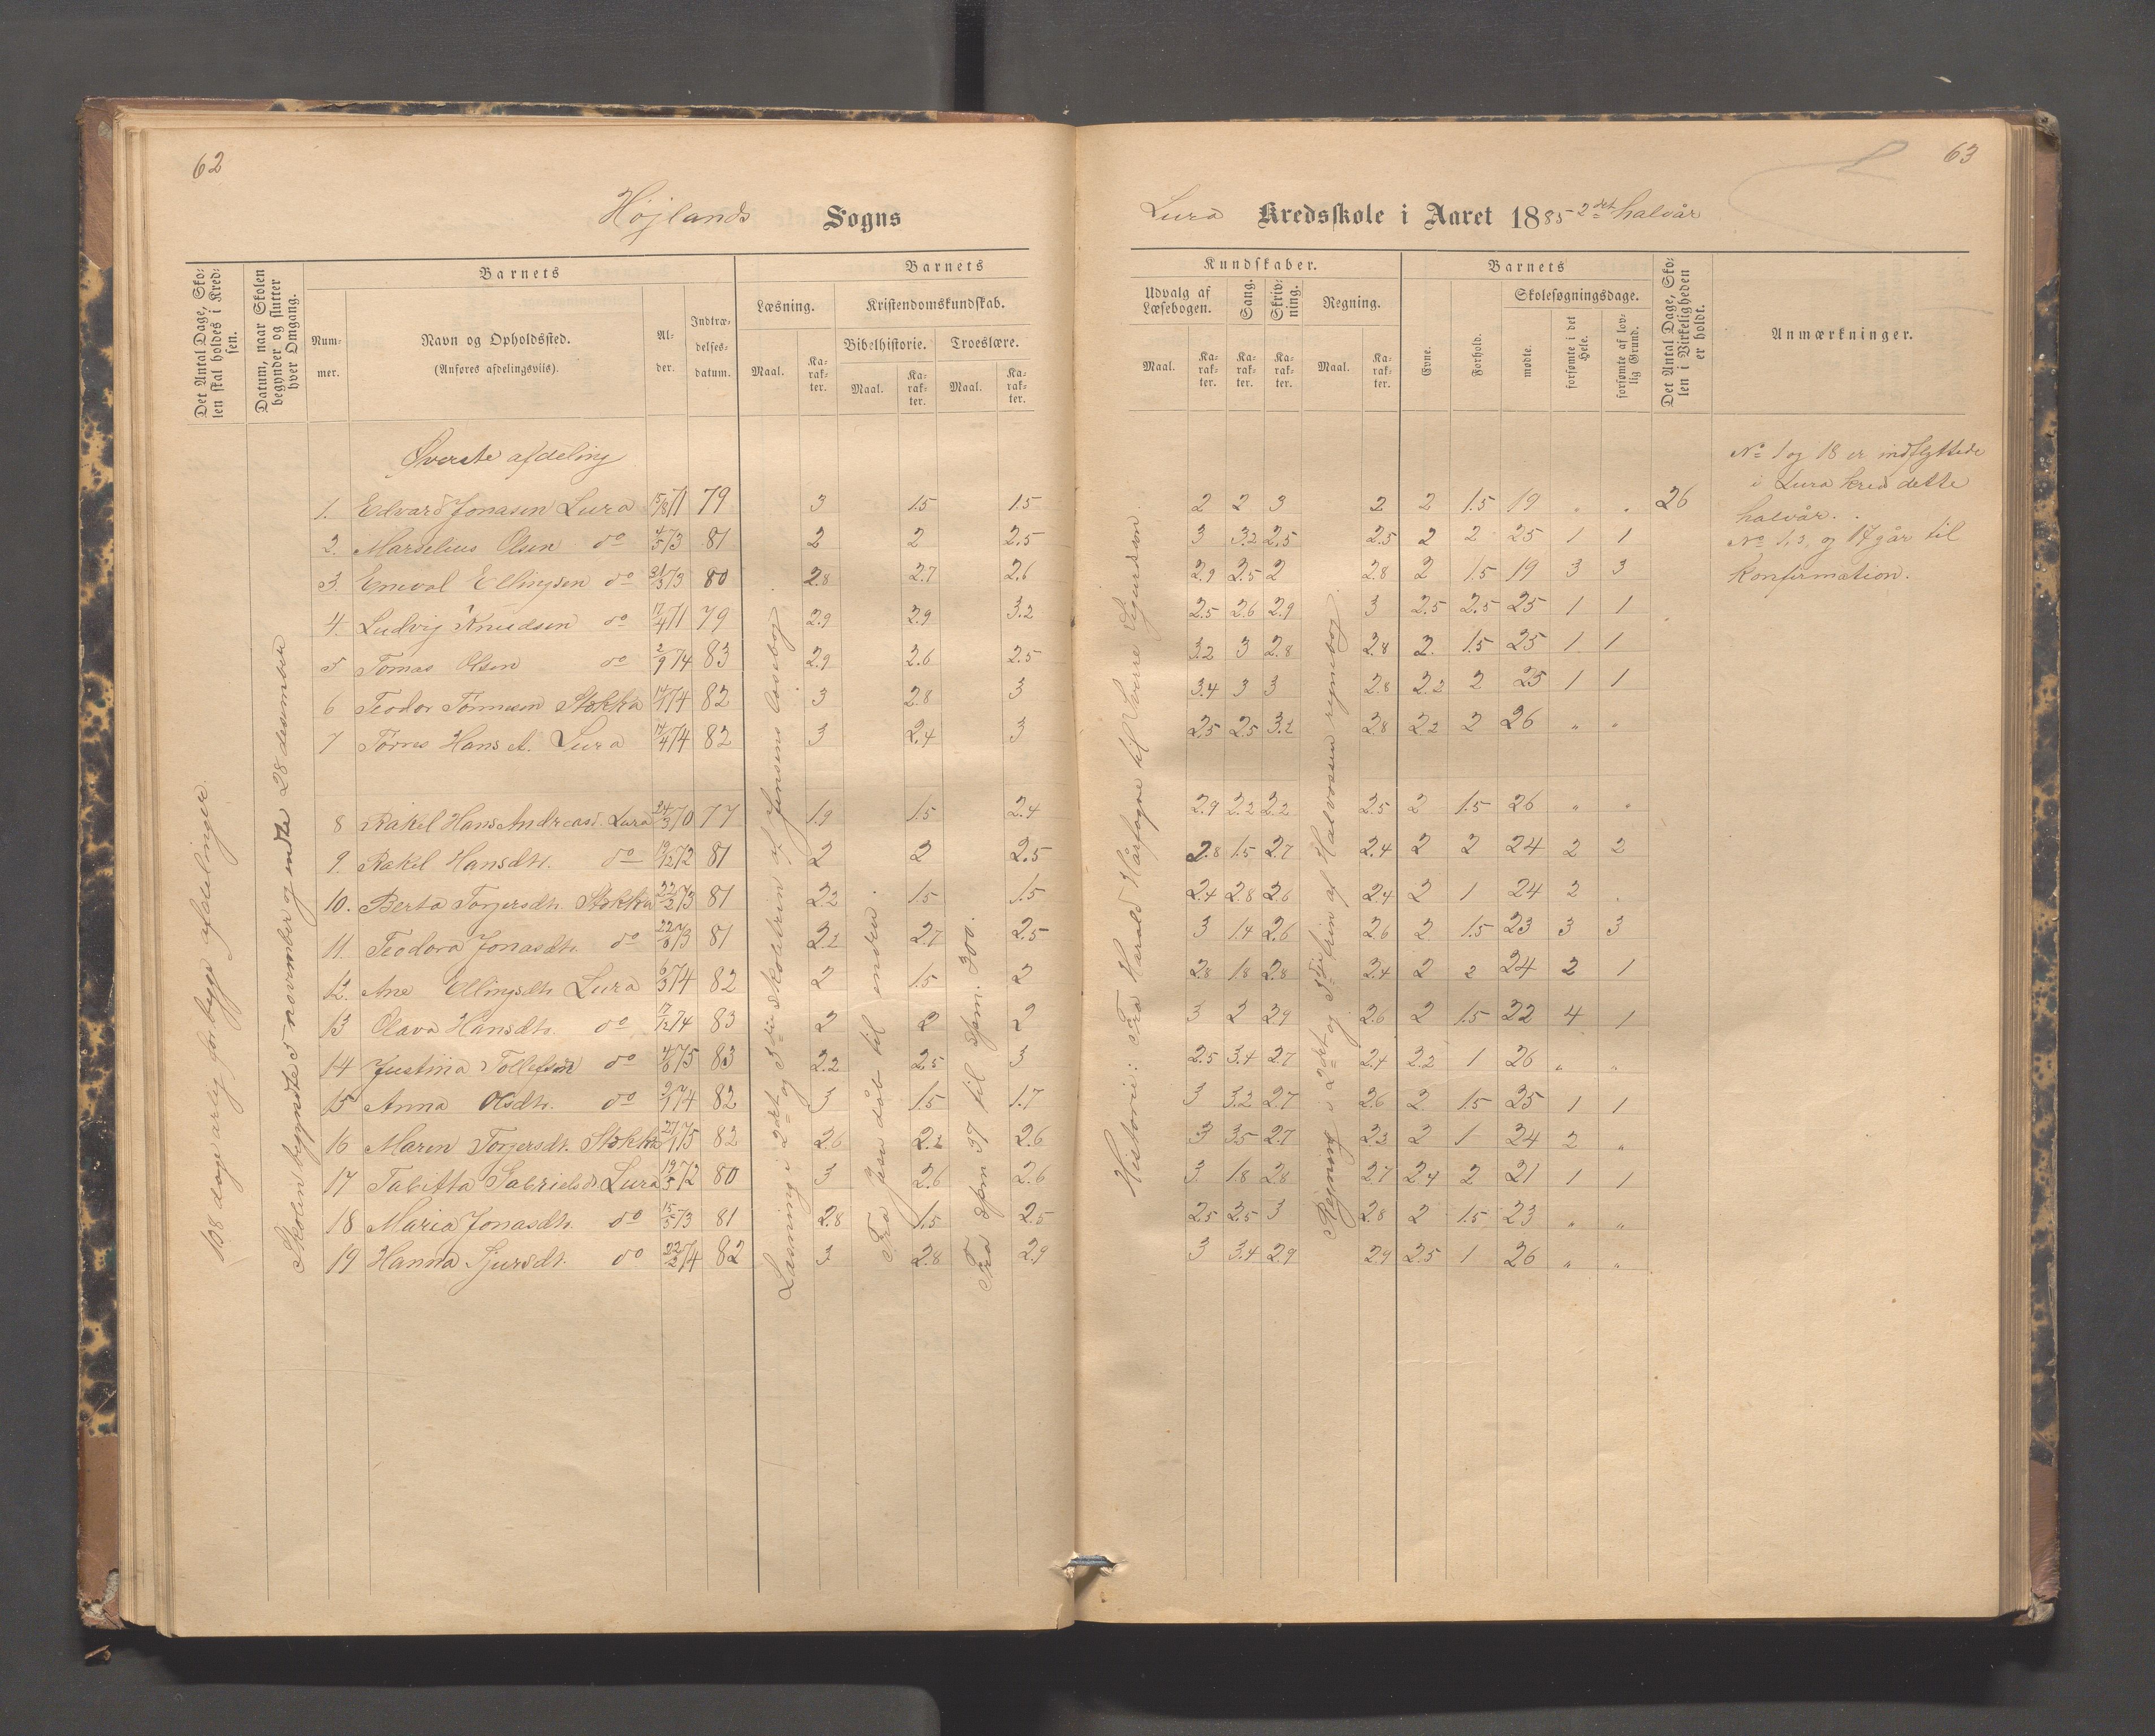 62
Højlands Sogns
Det Antal Dage, Sko-
len skal holdes i Kred-
sen.
Datum, naar Skolen
begynder og slutter
hver Omgang.
Barnets
Num-
mer.
Navn og Opholdssted.
(Anføres afdelingsviis).
Al-
der.
Indtræ-
delses-
datum.
Barnets
Læsning.
Maal.
Ka-
rak-
ter.
Kristendomskundskab.
Bibelhistorie.
Maal.
Ka-
rak-
ter.
Troeslære.
Maal.
Ka-
rak-
ter.
138 dage årlig for begge afdelinger.
Skolen begyndte 5 november og endte 28 desember
Øverste afdeling
1. Edvard Jonasen Lura 15/8 71 79 3 1.5 1.5
2. Marselius Olsen do 4/5 73 81 2 2 2.5
3. Enevol Ellingsen do 31/5 73 80 2.8 2.7 2.6
4. Ludvig Knudsen do 17/4 71 79 2.9 2.9 3.2
5 Tomas Olsen do 2/9 74 83 2.9 2.6 2.5
6 Teodor Tønnesen Stokka 74 82 3 2.8 3
7 Tørres Hans A. Lura 14/4 74 82 3 2.4 3
8 Rakel Hans Andreasd. Lura 24/3 70 77 1.9 1.5 2.4
9. Rakel Hansdtr. do 19/12 72 81 2 2 2.5
10. Berta Torgersdtr. Stokka 22/3 73 81 2.2 1.5 1.5
11. Teodora Jonasdtr. do 22/6 73 81 2.2 2.7 2.5
12. Ane Ellingsdtr. Lura 6/3 74 82 2 1.5 2
13 Olava Hansdtr. do 17/12 74 83 2 2 2
14 Justina Tollefsen do 4/6 75 83 2.2 2.5 3
15 Anna Olsdtr. do 9/1 74 82 3 1.5 1.7
16 Maren Torgersdtr. Stokka 27/1 75 82 2.6 2.2 2.6
17 Tabitta Gabrielsd. Lura 19/5 72 80 3 2.6 2.6
18 Maria Jonasdtr. do 15/5 73 81 2.8 1.5 2.5
19 Hanna Sjursdtr. do 22/2 74 82 3 2.8 2.9
Læsning i 2det og 3die skoletrin af Jensens læsebog.
Fra Jesu dåb til enden.
Fra spm. 37 til spm. 300.
63
Lura Kredsskole i Aaret 1885 2det halvår
Kundskaber.
Udvalg af
Læsebogen.
Maal.
Ka-
rak-
ter.
Sang.
Ka-
rak-
ter.
Skriv-
ning.
Ka-
rak-
ter.
Regning.
Maal.
Ka-
rak-
ter.
Barnets
Evne.
Forhold.
Skolesøgningsdage.
mødte.
forsømte i det
Hele.
forsømte af lov-
lig Grund.
Det Antal Dage, Sko-
len i Virkeligheden
er holdt.
Anmærkninger.
2 2 3 2 2 1.5 19 " " 26
3 3.2 2.5 2.5 2 2 25 1 1
2.9 2.5 2 2.8 2 1.5 19 3 3
2.5 2.6 2.9 3 2.5 2.5 25 1 1
3.2 3 2.8 2.8 2. 1.5 25 1 1
3.4 3 3 2.8 2.2 2 25 1 1
2.5 2.5 3.2 2.8 2.2 2 26 " "
2.9 2.2 2.2 2.5 2 1.5 26 " "
2.8 1.5 2.7 2.4 2 2 24 2 2
2.4 2.8 2.6 2.4 2 1 24 2 .
3 1.4 2.6 2.6 2 1.5 23 3 3
2.8 1.8 2.8 2.4 2 2 24 2 1
3 2 2.9 2.6 2 1.5 22 4 1
2.5 3.4 2.7 2.4 2.2 1 26 " "
3 3.2 2.7 2.6 2 1.5 25 1 1
3 3.5 2.7 2.3 2 1 24 2 "
3 1.8 2.8 2.7 2.4 2 21 1 1
2.5 2.5 3 2.8 2 1.5 23 " "
3 3.4 2.9 2.9 2.5 1 26 " "
Historie: Fra Harald Hårfagre til Sverre Sigurdsson.
Regning i 2det og 3die trin af Halvorsen regnebog.
No 1 og 18 er indflyttede
i Lura kred dette
halvår.
No 1, 3, og 17 går til
konfirmation.